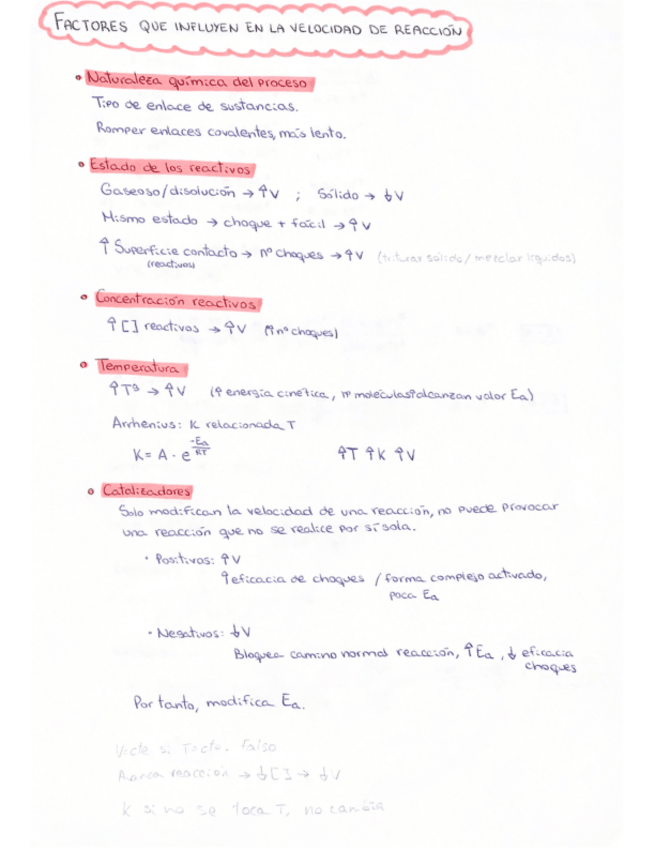 FACTORES QUE INFLUYEN EN LA VELOCIDAD DE REACCIÓN
• Naturaleza química del proceso
Tipo de enlace de sustancias.
Romper enlaces covalentes, más lento.
• Estado de los reactivos
Gaseoso/disolución → ↑V ; Sólido → ↓V
Mismo estado → choque + fácil → ↑V
↑ Superficie contacto → nº choques → ↑V (triturar sólido/mezclar líquidos)
(reactivos)
• Concentración reactivos
↑[] reactivos → ↑V (↑nº choques)
• Temperatura
↑Tª → ↑V (↑ energía cinética, nº moléculas↑alcanzan valor Ea)
Arrhenius: K relacionada T
K = A · e^(-Ea/RT) ↑T ↑K ↑V
• Catalizadores
Solo modifican la velocidad de una reacción, no puede provocar
una reacción que no se realice por sí sola.
· Positivos: ↑V
↑eficacia de choques / forma complejo activado,
poca Ea
· Negativos: ↓V
Bloquea camino normal reacción, ↑Ea, ↓ eficacia
choques
Por tanto, modifica Ea.
V=cte si T=cte. Falso
Avanza reacción → ↓[] → ↓V
K si no se toca T, no cambia